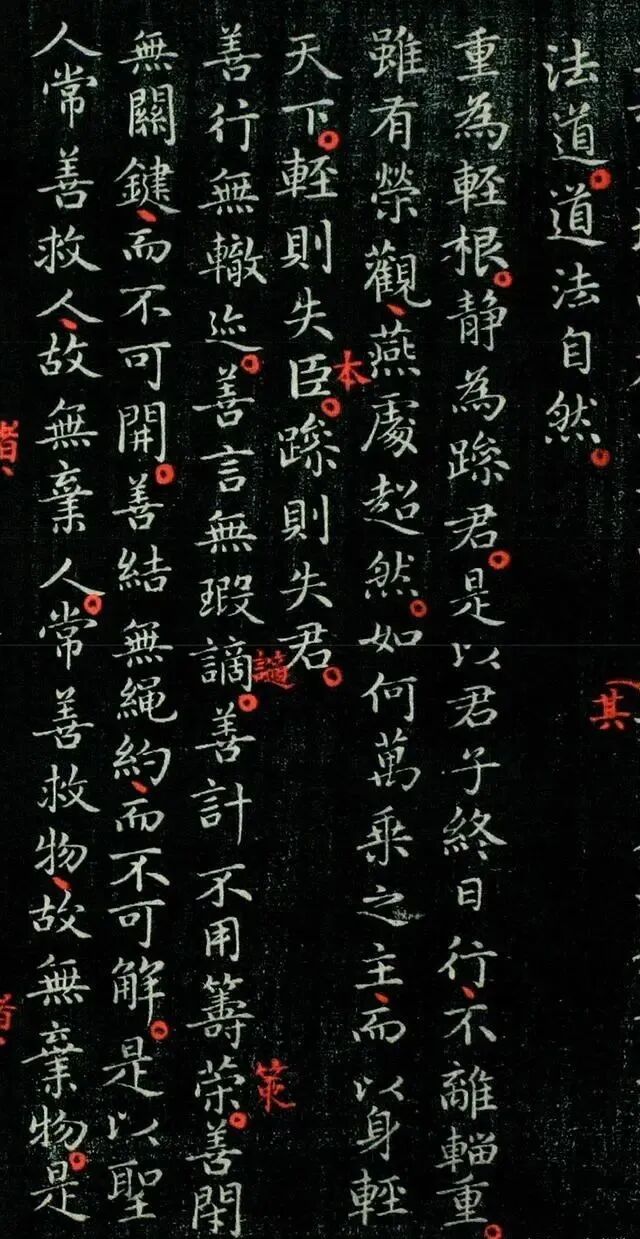 法道。道法自然。
其
重為輕根。静為躁君。是以君子終日行、不離輜重。
雖有榮觀、燕處超然。如何萬乘之主、而以身輕
本
天下。輕則失臣。躁則失君。
讁
筞
善行無轍迹。善言無瑕謫。善計不用籌荣。善閇
無關鍵、而不可開。善結無繩約、而不可解。是以聖
人常善救人、故無棄人。常善救物、故無棄物。是